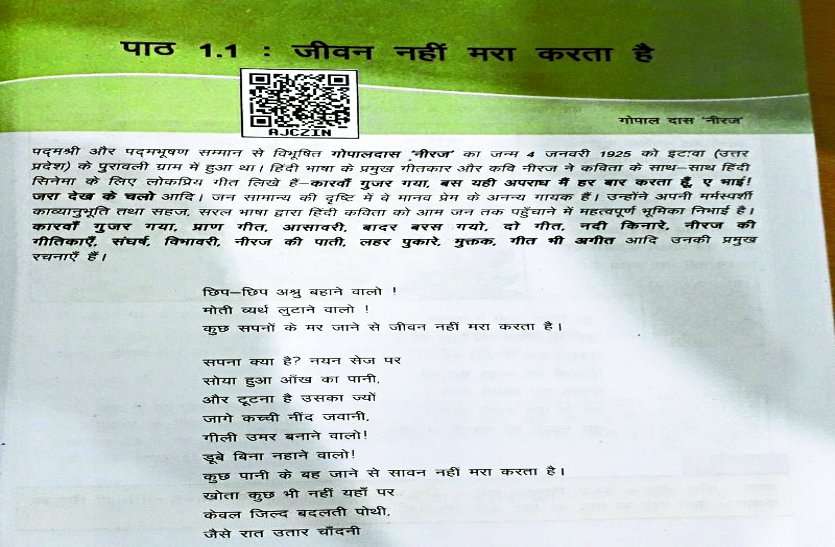 पाठ 1.1 : जीवन नहीं मरा करता है
AJCZIN
गोपाल दास 'नीरज'
पद्मश्री और पद्मभूषण सम्मान से विभूषित गोपालदास 'नीरज' का जन्म 4 जनवरी 1925 को इटावा (उत्तर
प्रदेश) के पुरावली ग्राम में हुआ था। हिंदी भाषा के प्रमुख गीतकार और कवि नीरज ने कविता के साथ-साथ हिंदी
सिनेमा के लिए लोकप्रिय गीत लिखे हैं–कारवाँ गुजर गया, बस यही अपराध मैं हर बार करता हूँ, ए भाई!
जरा देख के चलो आदि। जन सामान्य की दृष्टि में वे मानव प्रेम के अनन्य गायक हैं। उन्होंने अपनी मर्मस्पर्शी
काव्यानुभूति तथा सहज, सरल भाषा द्वारा हिंदी कविता को आम जन तक पहुँचाने में महत्वपूर्ण भूमिका निभाई है।
कारवाँ गुजर गया, प्राण गीत, आसावरी, बादर बरस गयो, दो गीत, नदी किनारे, नीरज की
गीतिकाएँ, संघर्ष, विभावरी, नीरज की पाती, लहर पुकारे, मुक्तक, गीत भी अगीत आदि उनकी प्रमुख
रचनाएँ हैं।
छिप–छिप अश्रु बहाने वालो !
मोती व्यर्थ लुटाने वालो !
कुछ सपनों के मर जाने से जीवन नहीं मरा करता है।
सपना क्या है? नयन सेज पर
सोया हुआ आँख का पानी,
और टूटना है उसका ज्यों
जागे कच्ची नींद जवानी,
गीली उमर बनाने वालो!
डूबे बिना नहाने वालो!
कुछ पानी के बह जाने से सावन नहीं मरा करता है।
खोता कुछ भी नहीं यहाँ पर
केवल जिल्द बदलती पोथी,
जैसे रात उतार चाँदनी